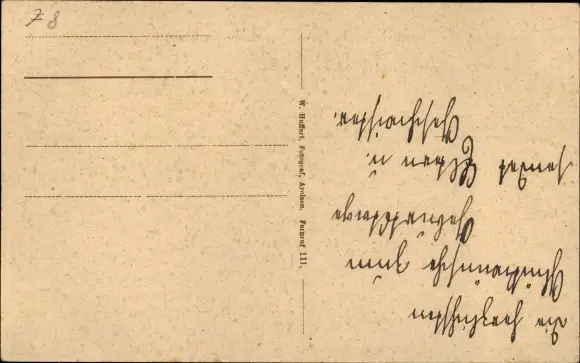 Z 8
W. Huffert, Fotograf, Arolsen. Fernruf 111.
Die herzlichsten
Glückwünsche zum
Geburtstage
sendet Eltern u.
Geschwister.